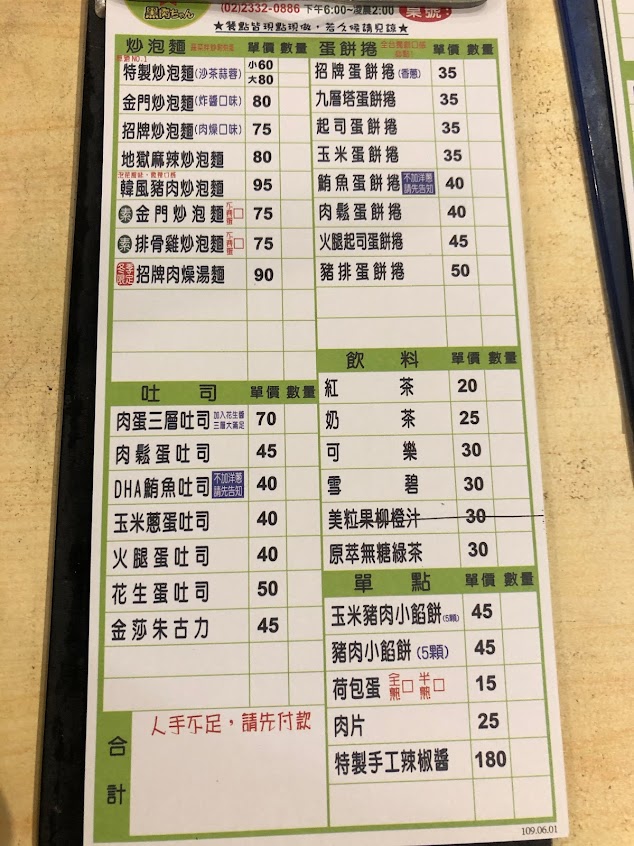 (02)2332-0886 下午6:00~凌晨2:00 桌號:
★餐點皆現點現做，若久候請見諒★
炒泡麵 單價 數量
特製炒泡麵(沙茶蒜蓉) 小60 大80
金門炒泡麵(炸醬口味) 80
招牌炒泡麵(肉燥口味) 75
地獄麻辣炒泡麵 80
韓風豬肉炒泡麵 95
素 金門炒泡麵 75
素 排骨雞炒泡麵 75
冬季限定 招牌肉燥湯麵 90
吐司 單價 數量
肉蛋三層吐司 加入花生醬 三層大滿足 70
肉鬆蛋吐司 45
DHA鮪魚吐司 不加洋蔥 請先告知 40
玉米蔥蛋吐司 40
火腿蛋吐司 40
花生蛋吐司 50
金莎朱古力 45
合計
人手不足，請先付款
蛋餅捲 單價 數量
招牌蛋餅捲(香蔥) 35
九層塔蛋餅捲 35
起司蛋餅捲 35
玉米蛋餅捲 35
鮪魚蛋餅捲 不加洋蔥 請先告知 40
肉鬆蛋餅捲 40
火腿起司蛋餅捲 45
豬排蛋餅捲 50
飲料 單價 數量
紅茶 20
奶茶 25
可樂 30
雪碧 30
美粒果柳橙汁 30
原萃無糖綠茶 30
單點 單價 數量
玉米豬肉小餡餅(5顆) 45
豬肉小餡餅(5顆) 45
荷包蛋 全熟□ 半熟□ 15
肉片 25
特製手工辣椒醬 180
109.06.01